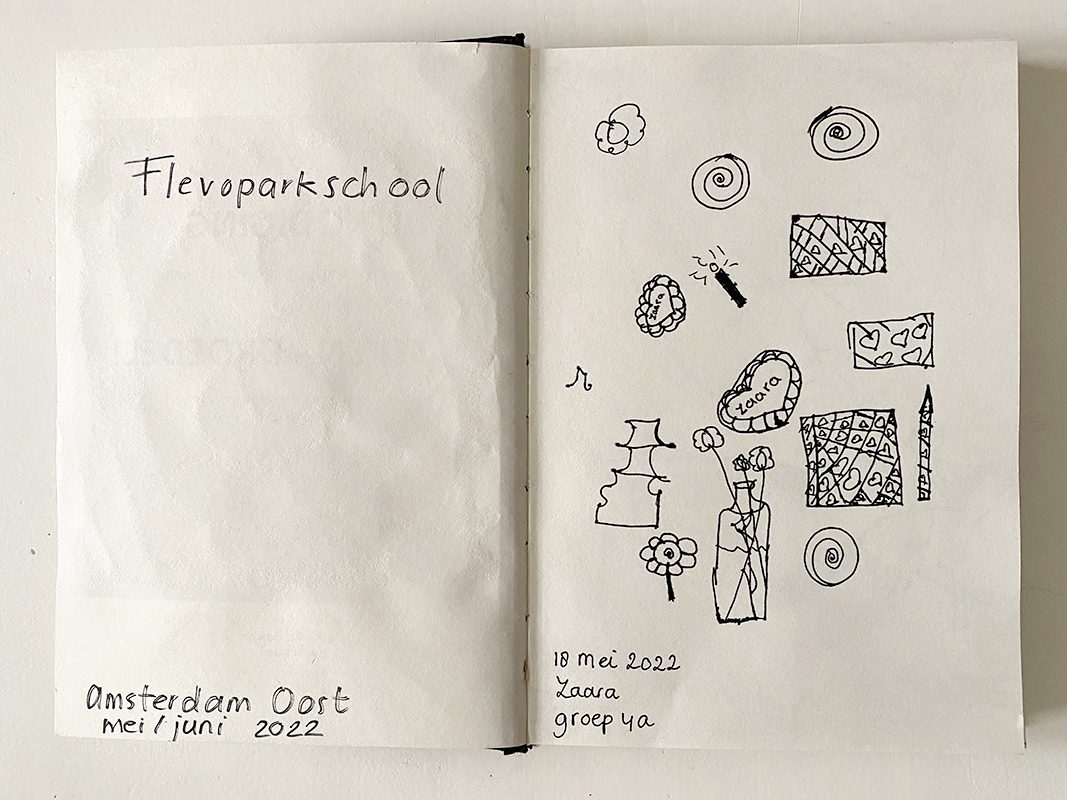 Flevoparkschool
amsterdam Oost
mei / juni 2022
zaara
zaara
18 mei 2022
Zaara
groep 4a